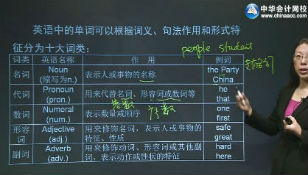 中华会计网校
www.chinaacc.com
英语中的单词可以根据词义、句法作用和形式特
征分为十大词类: people student
词类 名称 作 用 例词
名词 Noun (缩写为n.) 表示人或事物的名称 the Party China
代词 Pronoun (pron.) 用来代替名词、形容词或数词等 he that
数词 Numeral (num.) 表示数量或顺序 one first
基数 序数
形容词 Adjective (adj.) 用来修饰名词,表示人或事物的特征、性质 safe great
副词 Adverb (adv.) 用来修饰动词、形容词或其他副词,表示动作或性状的特征 hard here